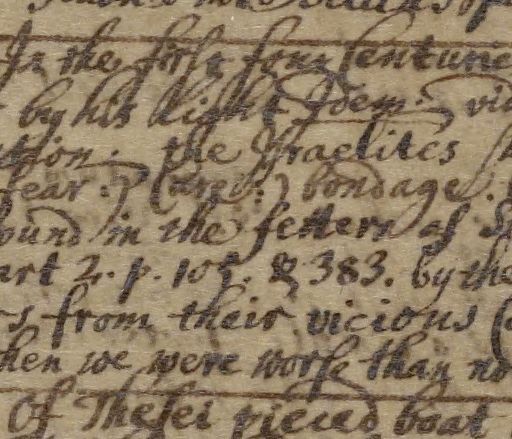 In the first four Centurie
by his Light Idem: vid
ction: the Israelites
bondage.
ound in the fetters of S
art 2. p. 105. & 383. by the
rs from their vicious (
hen we were worse than no
Of Thesei pieced boat